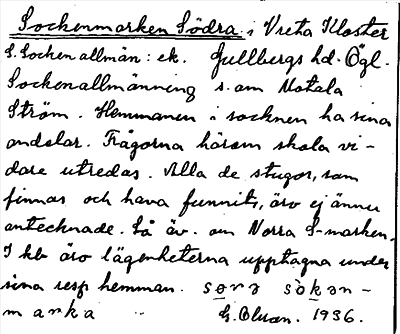 Sockenmarken Södra i Vreta Kloster
S. Socken allmän: ek. Gullbergs hd. Ögl.
Sockenallmänning s. om Motala
Ström. Hemmanen i socknen ha sina
andelar. Frågorna härom skola vi-
dare utredas. Alla de stugor, som
finnas och hava funnits, äro ej ännu
antecknade. Så äv. om Norra S-marken.
I kb äro lägenheterna upptagna under
sina resp hemman. sørə sòkən-
marka G. Olson. 1936.